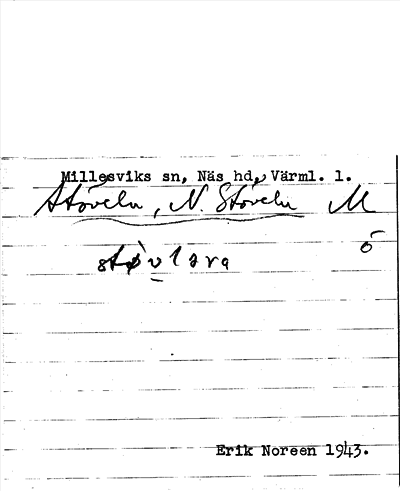 Millesviks sn, Näs hd, Värml. l.
Støveln, N. Støveln M
ö
stø̀vlara
Erik Noreen 1943.